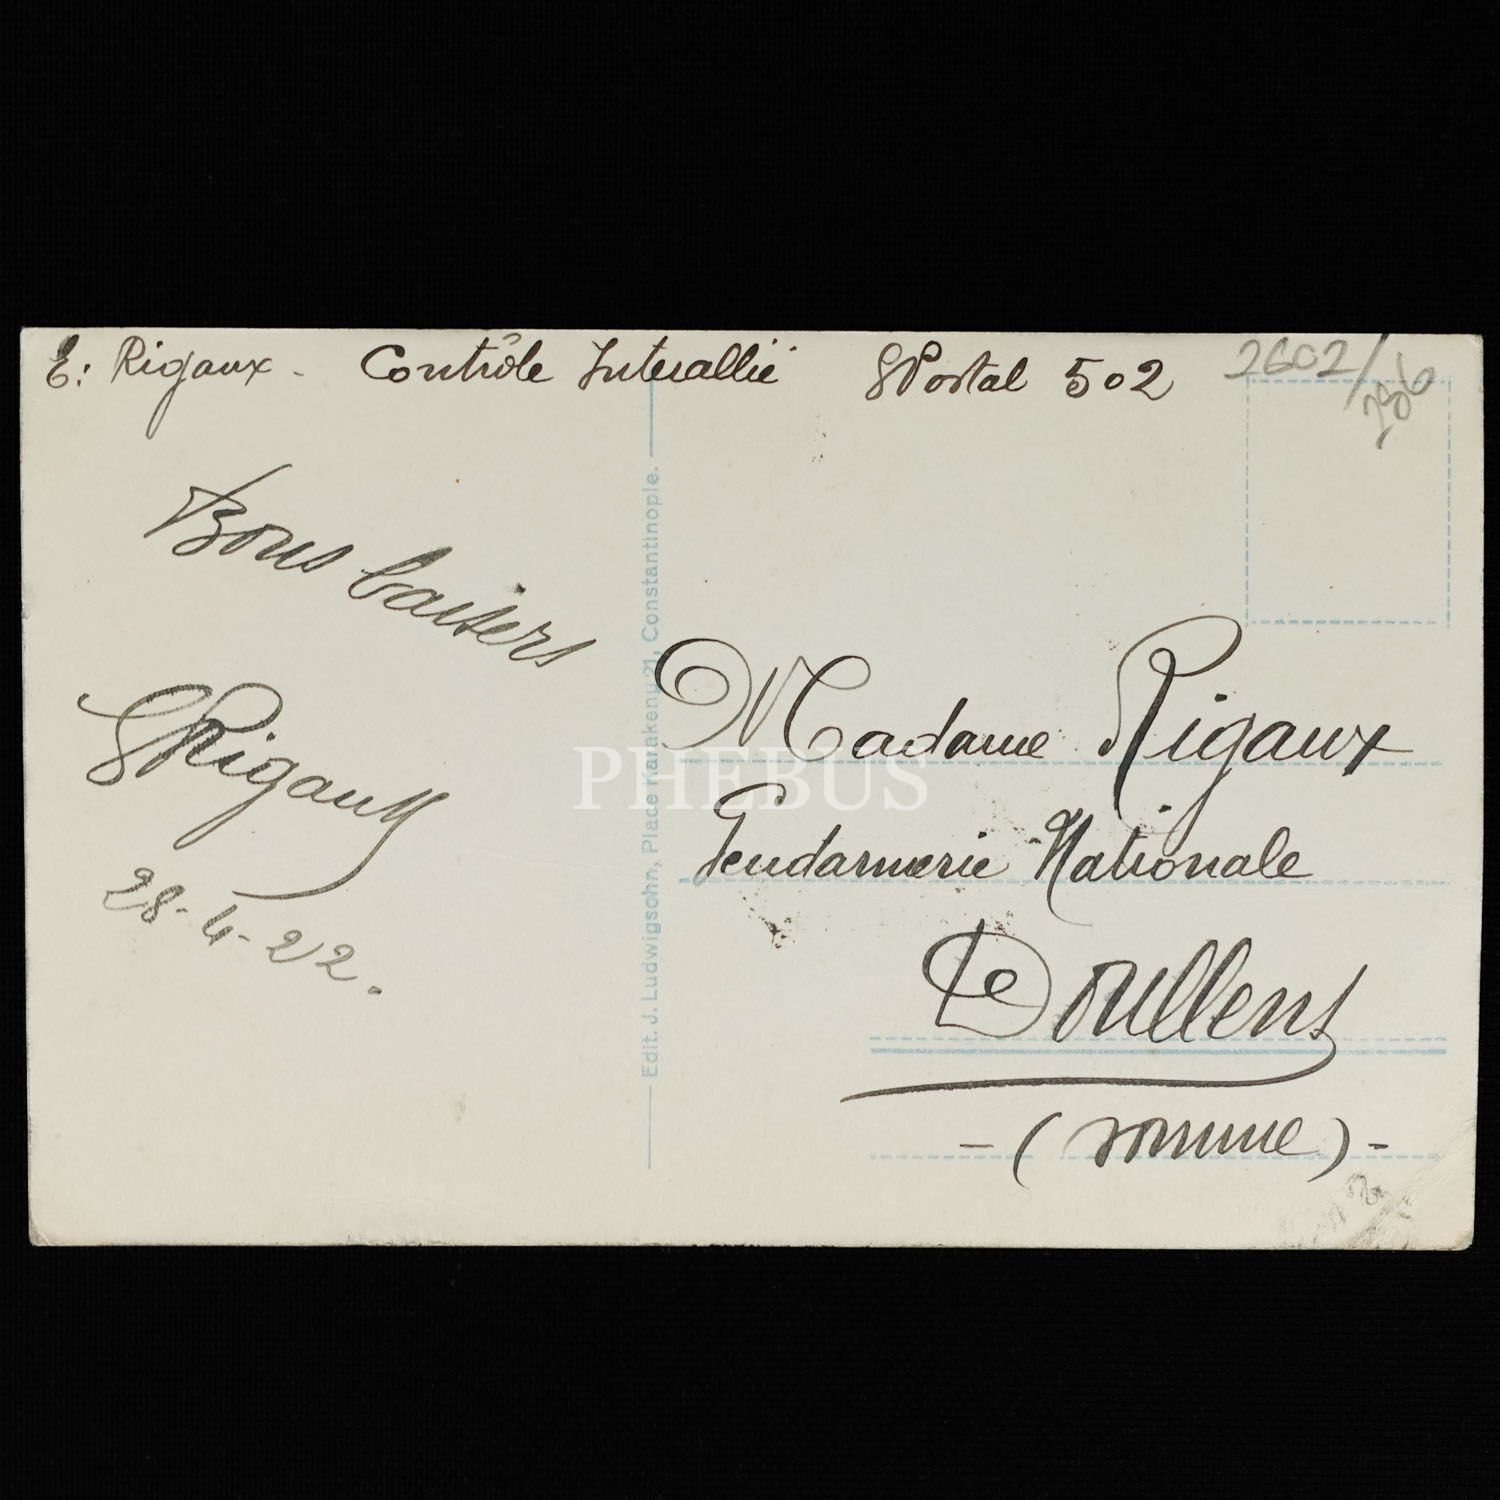 E: Rigaux - Contrôle Interallié SPostal 502
2602/
Bons baisers
Rigaux
28-4-22.
Edit. J. Ludwigsohn, Place Karakeuy 21, Constantinople.
Madame Rigaux
Gendarmerie Nationale
Doullens
- (Somme) -
PHEBUS